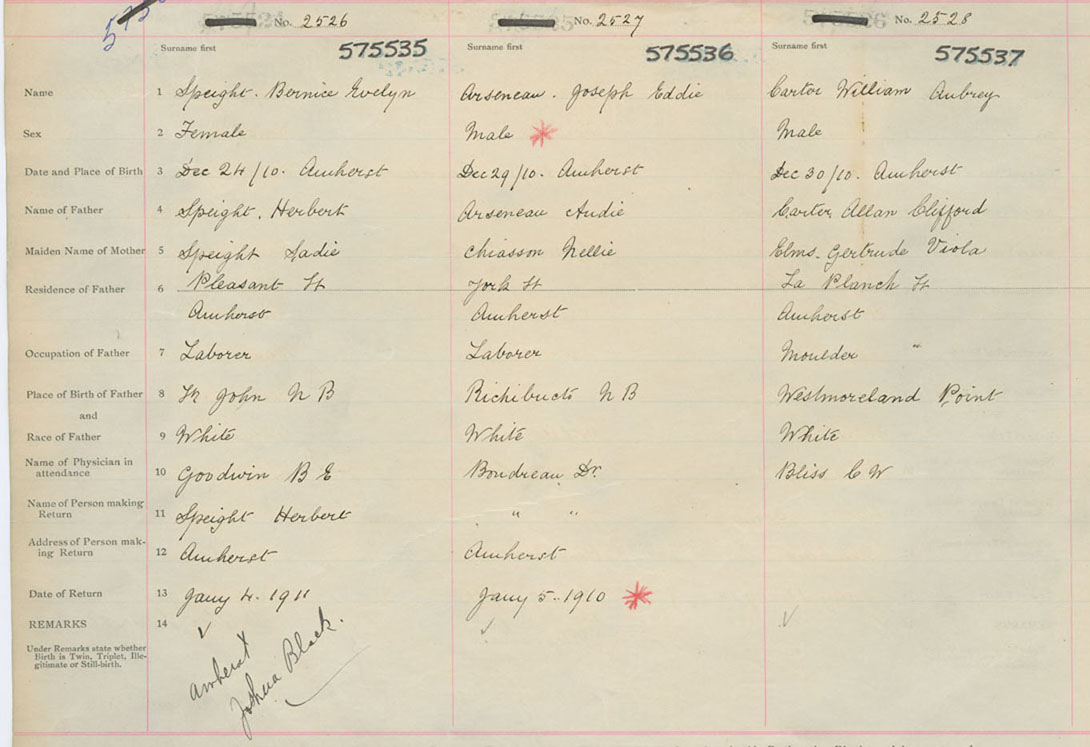 No. 2526 No. 2527 No. 2528
Surname first 575535 Surname first 575536 Surname first 575537
Name 1 Speight. Bernice Evelyn Arseneau. Joseph Eddie Carter William Aubrey
Sex 2 Female Male Male
Date and Place of Birth 3 Dec 24/10. Amherst Dec 29/10. Amherst Dec 30/10. Amherst
Name of Father 4 Speight. Herbert Arseneau Audie Carter Allan Clifford
Maiden Name of Mother 5 Speight Sadie Chiasson Nellie Elms. Gertrude Viola
Residence of Father 6 Pleasant St York St La Planch St
Amherst Amherst Amherst
Occupation of Father 7 Laborer Laborer Moulder "
Place of Birth of Father 8 St John N B Richibucto N B Westmoreland Point
and
Race of Father 9 White White White
Name of Physician in
attendance 10 Goodwin B E Boudreau Dr. Bliss C W
Name of Person making
Return 11 Speight Herbert " "
Address of Person mak-
ing Return 12 Amherst Amherst
Date of Return 13 Jany 4. 1911 Jany 5. 1910
REMARKS 14
Under Remarks state whether
Birth is Twin, Triplet, Ille-
gitimate or Still-birth.
Amherst
Joshua Black.